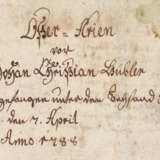 Oster-Arien
vor
Johan Christian Kubler
gesungen unter den
den 7. April
Anno 1788